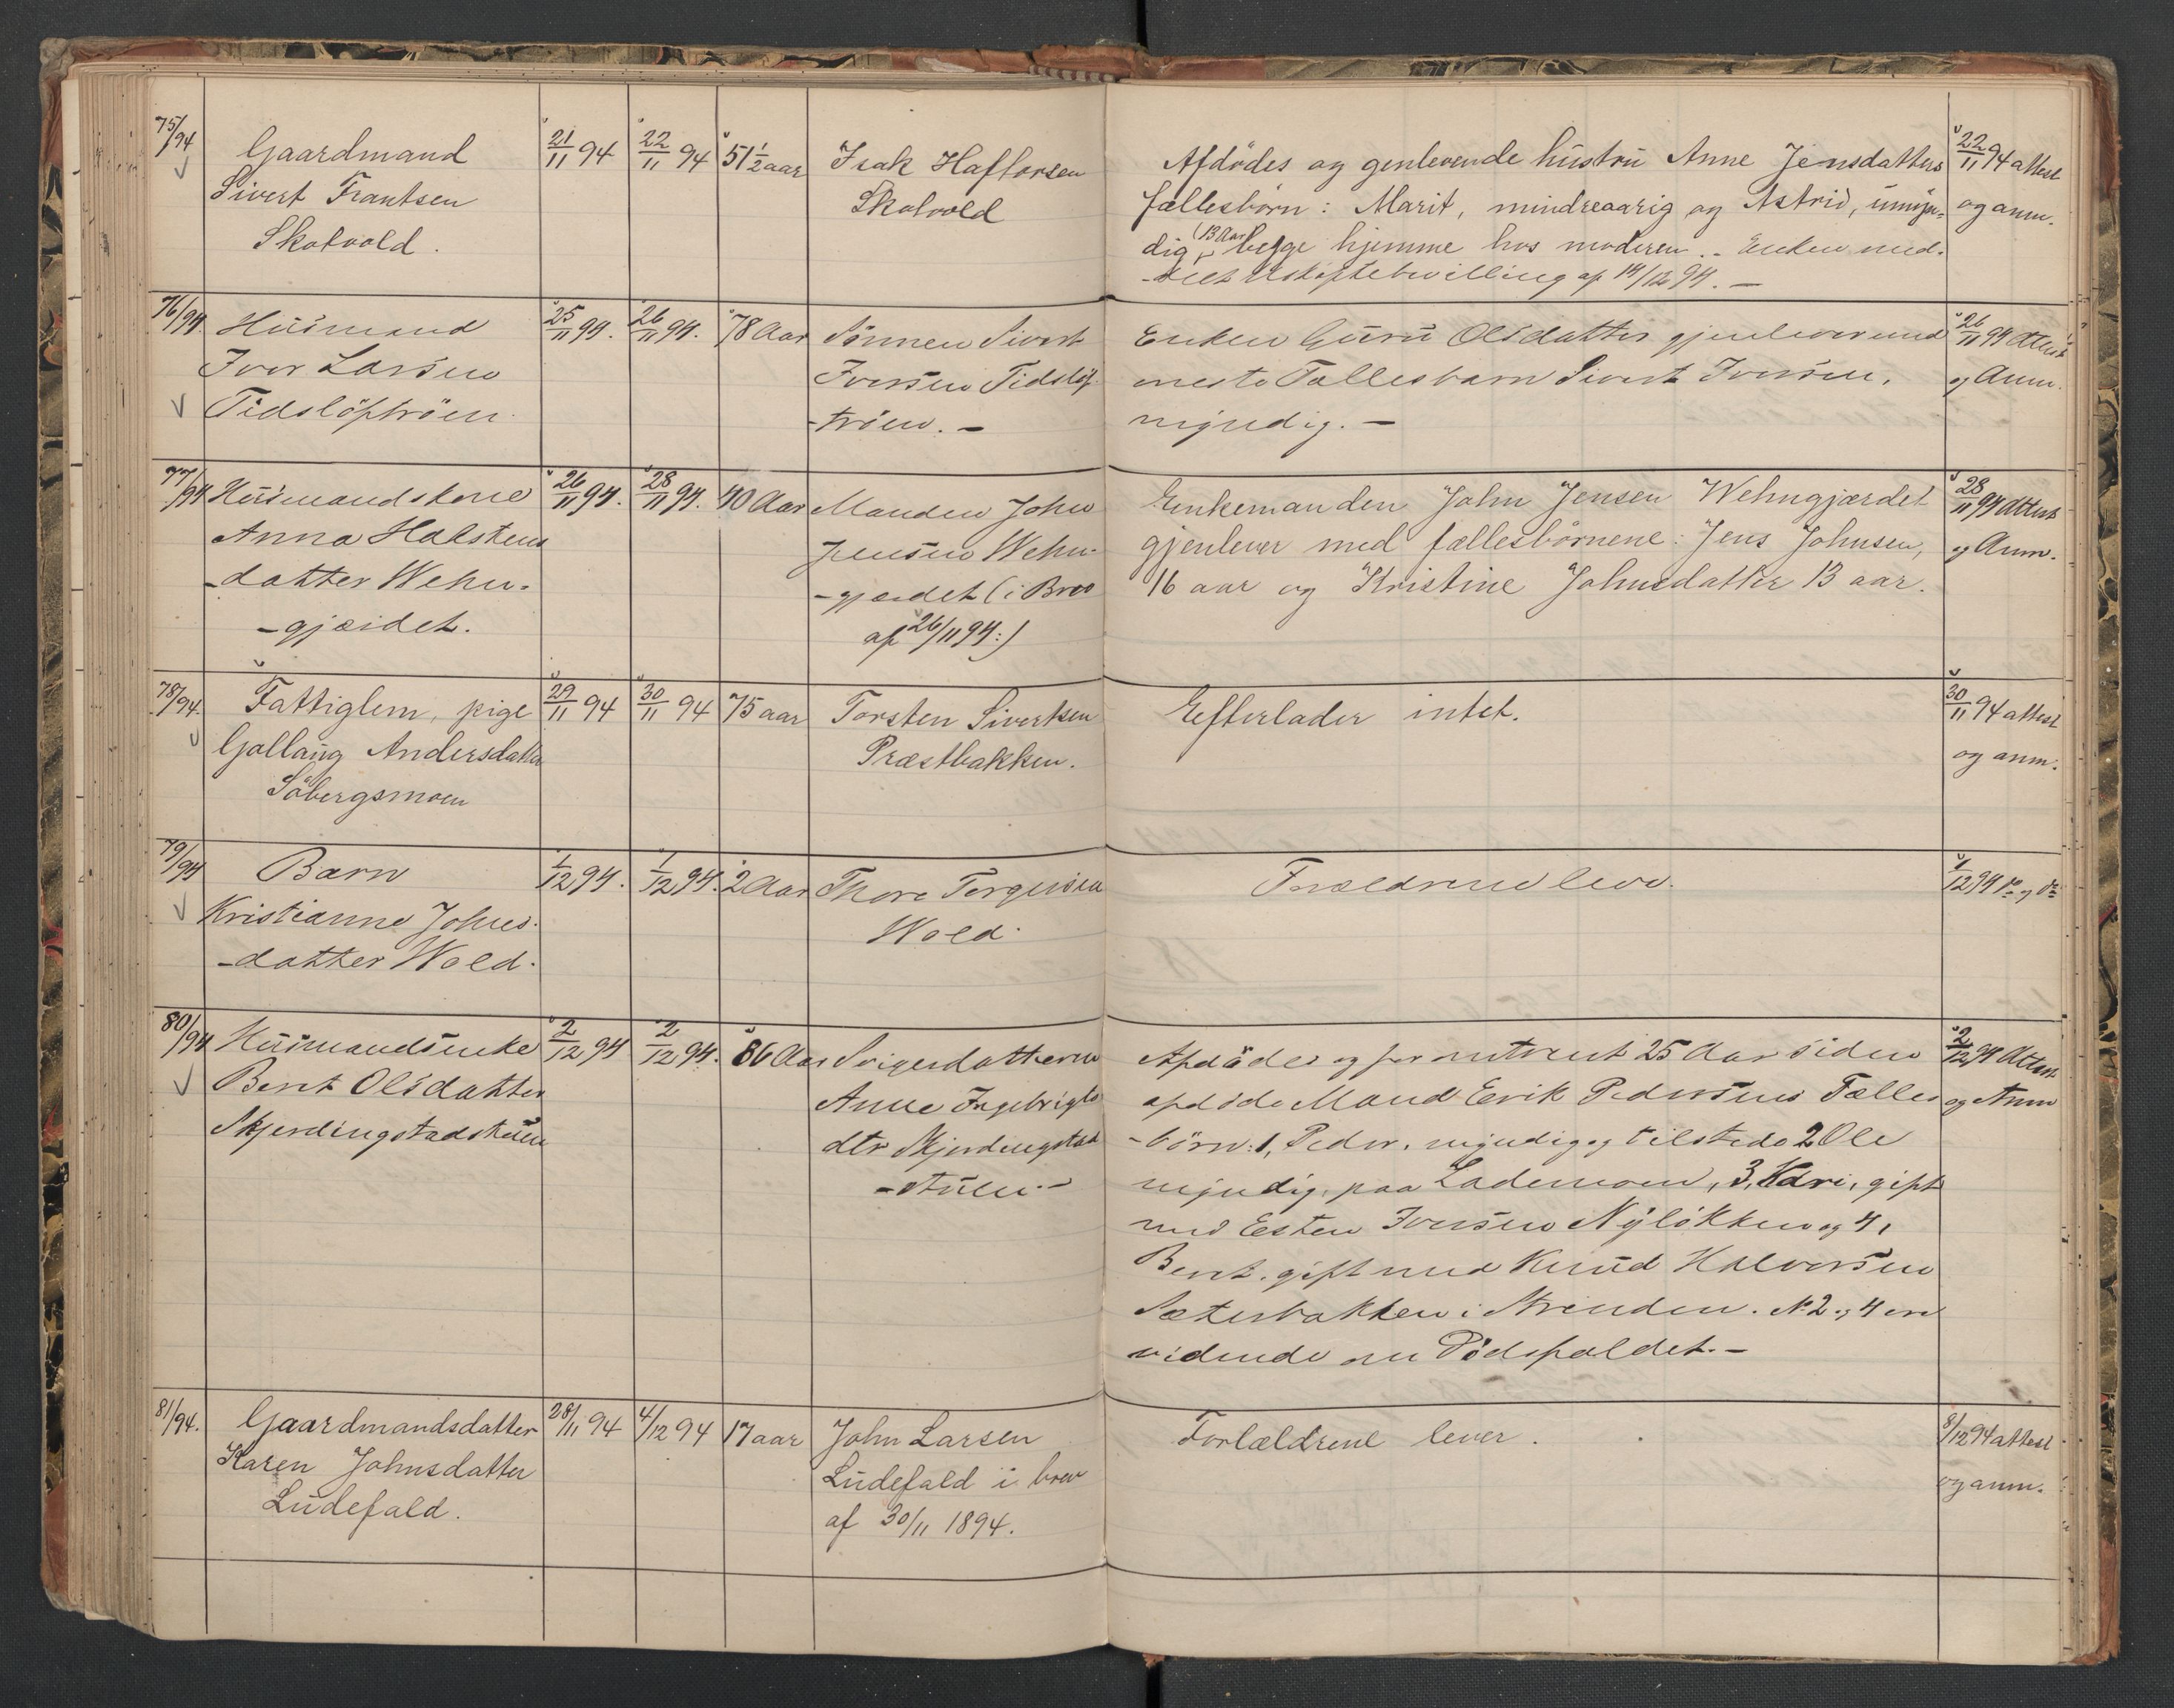 75/94
Gaardmand
Sivert Frantsen
Skotvold.
21/11 94
22/11 94
51 1/2 aar
Isak Haftorsen
Skotvold
Afdödes og genlevende hustru Anne Jensdatters
fællesbörn: Marit, mindreaarig og Astrid, umyn-
dig (13 Aar) begge hjemme hos moderen. Enken med-
-delt Uskiftebevilling af 14/12 94. —
22/11 94 attest
og anm.
76/94.
Husmand
Iver Larsen
Tidslöftröen.
25/11 94.
26/11 94.
78 Aar
Sönnen Sivert
Iversen Tidslöf-
-tröen. —
Enken Guru Olsdatter gjenlever med
eneste Fællesbarn Sivert Iversen,
myndig. —
26/11 94 Attest
og Anm.
77/94
Husmandskone
Anna Halstens
-datter Wehn-
-gjærdet.
26/11 94.
28/11 94.
40 Aar
Manden John
Jensen Wehn-
-gjærdet (i Brev
af 26/11 94:)
Enkemanden John Jensen Wehngjærdet
gjenlever med fællesbörnene: Jens Johnsen,
16 aar og Kristine Johnsdatter 13 aar.
28/11 94 Attest
og Anm.
78/94.
Fattiglem, pige
Gollaug Andersdatter
Söbergsmoen
29/11 94
30/11 94
75 aar
Torsten Sivertsen
Præstbakken.
Efterlader intet.
30/11 94 attest
og anm.
79/94
Barn
Kristianne Johns-
-datter Wold.
1/12 94.
1/12 94.
2 Aar
Thore Torgersen
Wold.
Forældrene leve.
1/12 94 do og do
80/94
Husmandsenke
Berit Olsdatter
Skjerdingstadstuen
2/12 94
2/12 94.
86 Aar
Svigerdatteren
Anne Ingebrigts
dtr Skjerdingstad
-stuen. —
Afdödes og for omtrent 25 Aar siden
afdöde Mand Erik Pedersens Fælles
-börn: 1, Peder, myndig og tilstede 2 Ole
myndig, paa Lademoen, 3, Kari, gift
med Esten Iversen Nylökken og 4,
Berit, gift med Knud Halvorsen
Sæterbakken i Strinden. No 2 og 4 ere
vidende om Dödsfaldet. —
2/12 94 Attest
og Anm
81/94.
Gaardmandsdatter
Karen Johnsdatter
Ludefald.
28/11 94
4/12 94
17 aar
John Larsen
Ludefald i brev
af 30/11 1894.
Forlældrene lever.
8/12 94 attest
og anm.